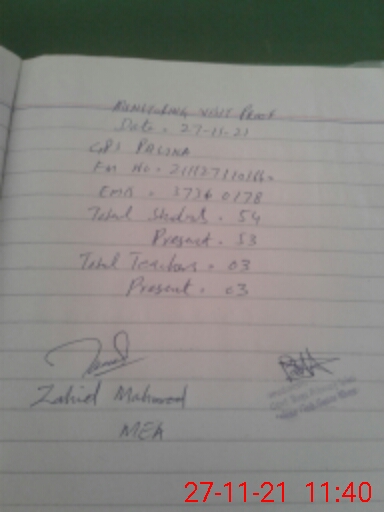 Monitoring Visit Proof
Date. 27-11-21
GPS
EMIS. 37360178
Total Students. 54
Present. 53
Total Teachers. 03
Present. 03
Zahid Mahmood
MEA
27-11-21 11:40